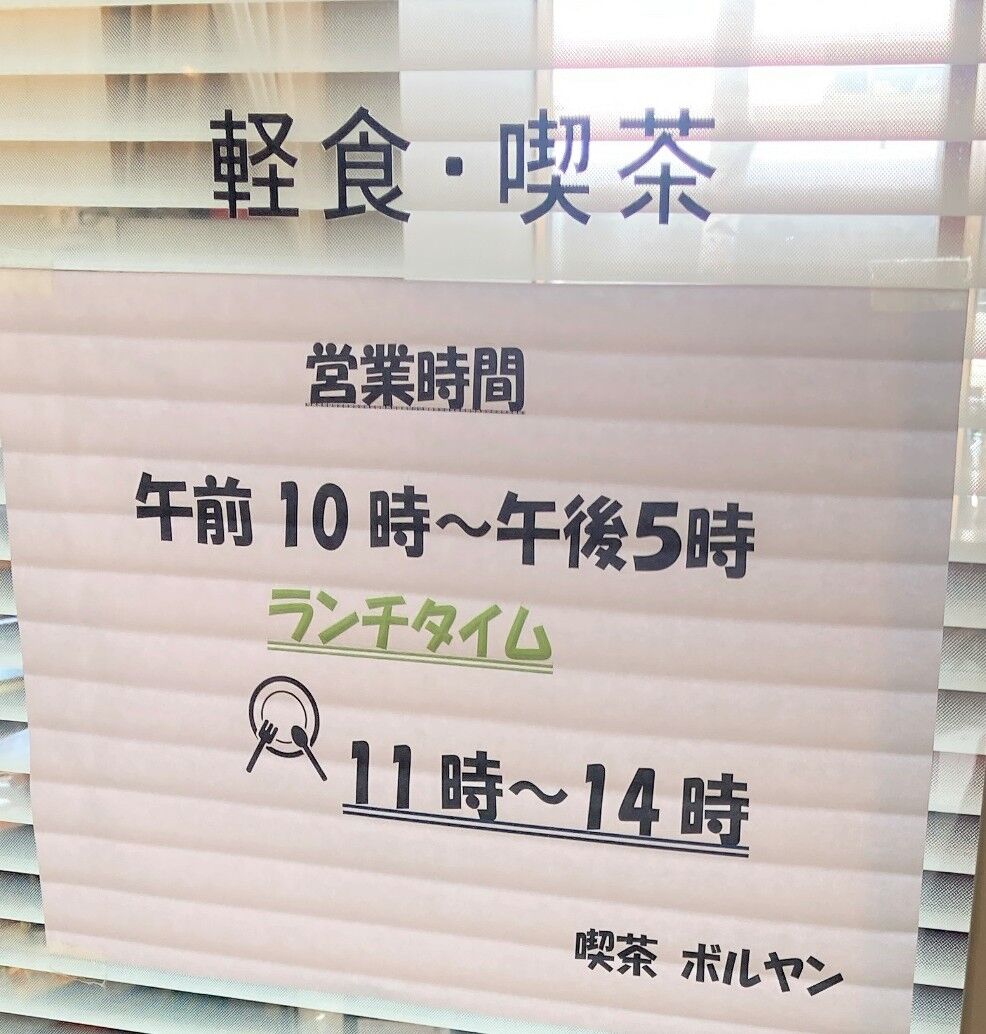 軽食・喫茶
営業時間
午前 10 時～午後5時
ランチタイム
11 時～14 時
喫茶 ボルヤン